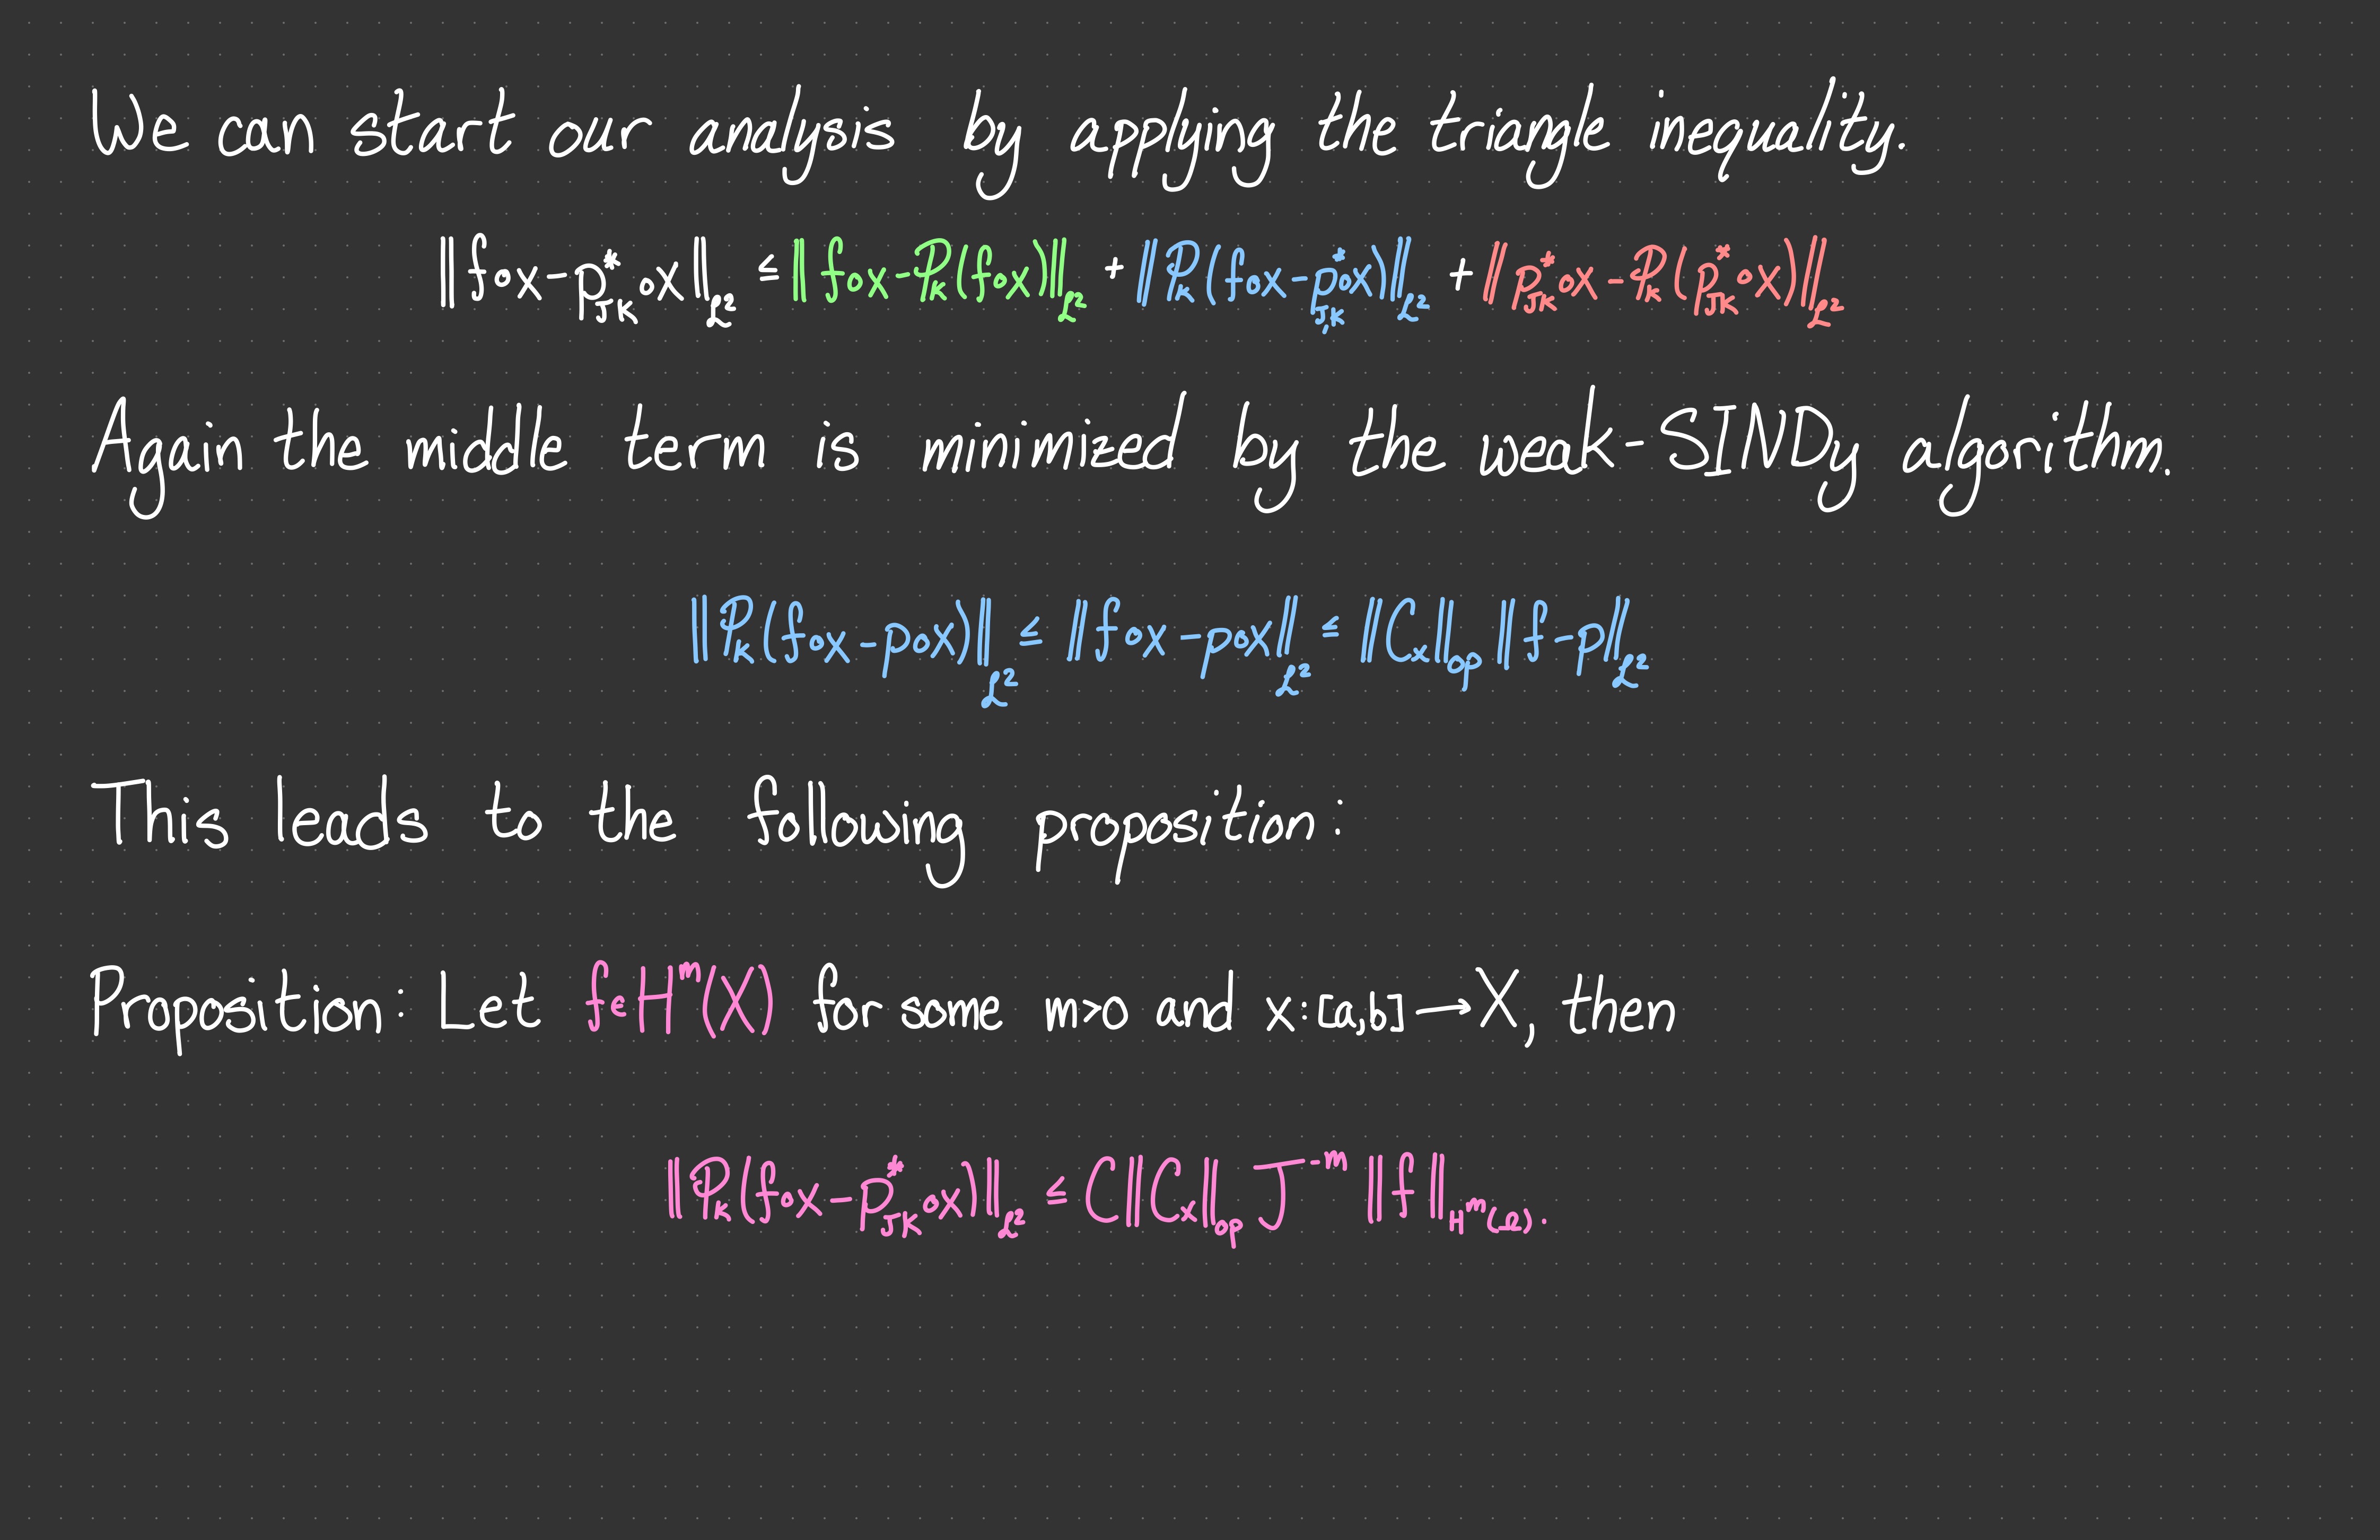 We can start our analysis by applying the triangle inequality.
‖f∘x−p*_{JK}∘x‖_{L²} ≤ ‖f∘x−P_k(f∘x)‖_{L²} + ‖P_k(f∘x−p*_{J,K}∘x)‖_{L²} + ‖p*_{JK}∘x−P_k(p*_{JK}∘x)‖_{L²}
Again the middle term is minimized by the weak-SINDy algorithm.
‖P_k(f∘x−p∘x)‖_{L²} ≤ ‖f∘x−p∘x‖_{L²} ≤ ‖C_x‖_{op} ‖f−p‖_{L²}
This leads to the following proposition:
Proposition: Let f∈H^m(X) for some m>0 and x:[a,b]→X, then
‖P_k(f∘x−p*_{JK}∘x)‖_{L²} ≤ C‖C_x‖_{op} J^{-m} ‖f‖_{H^m(Ω)}.